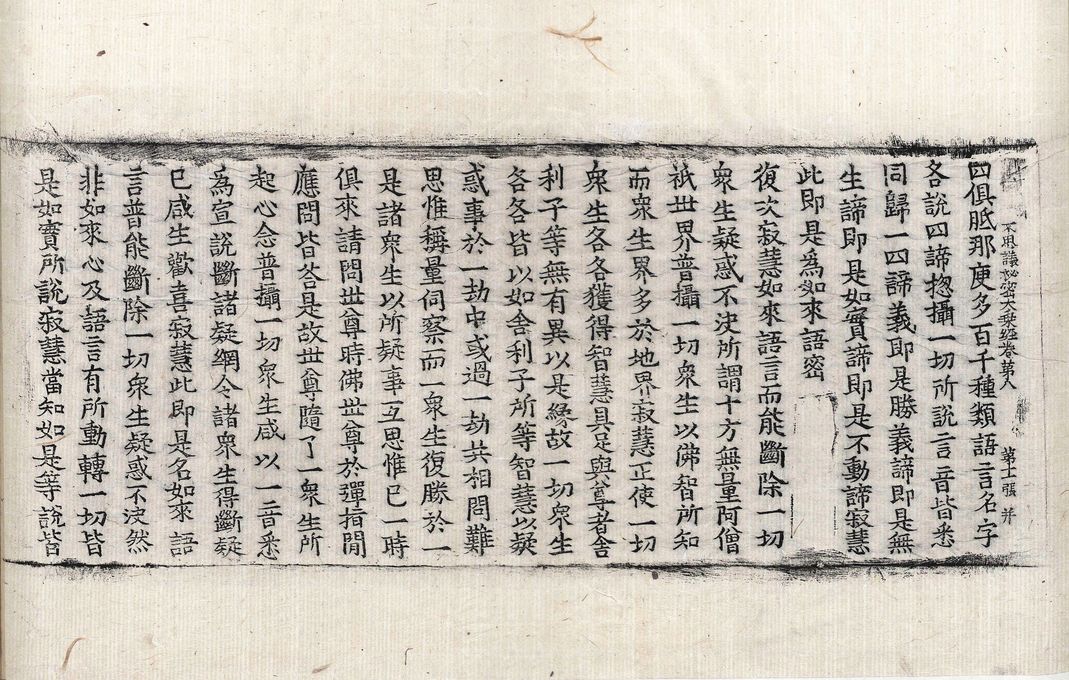 不思議秘密大乘經卷第八 第十一張 并
四俱胝那庾多百千種類語言名字
各說四諦揔攝一切所說言音皆悉
同歸一四諦義即是勝義諦即是無
生諦即是如實諦即是不動諦寂慧
此即是為如來語密
復次寂慧如來語言而能斷除一切
衆生疑惑不决所謂十方無量阿僧
祇世界普攝一切衆生以佛智所知
而衆生界多於地界寂慧正使一切
衆生各各獲得智慧具足與尊者舍
利子等無有異以是緣故一切衆生
各各皆以如舍利子所等智慧以疑
惑事於一劫中或過一劫共相問難
思惟稱量伺察而一衆生復勝於一
是諸衆生以所疑事互思惟已一時
俱來請問世尊時佛世尊於彈指間
應問皆答是故世尊隨了一衆生所
起心念普攝一切衆生咸以一音悉
為宣說斷諸疑網令諸衆生得斷疑
已咸生歡喜寂慧此即是名如來語
言普能斷除一切衆生疑惑不决然
非如來心及語言有所動轉一切皆
是如實所說寂慧當知如是等說皆